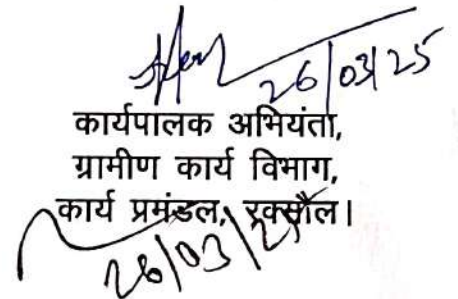 26/03/25
कार्यपालक अभियंता,
ग्रामीण कार्य विभाग,
कार्य प्रमंडल, रक्सौल।
26/03/25